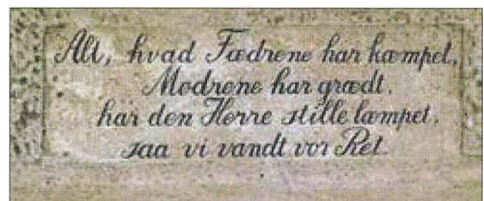 Alt, hvad Fædrene har kæmpet,
Mødrene har grædt,
har den Herre stille læmpet,
saa vi vandt vor Ret.